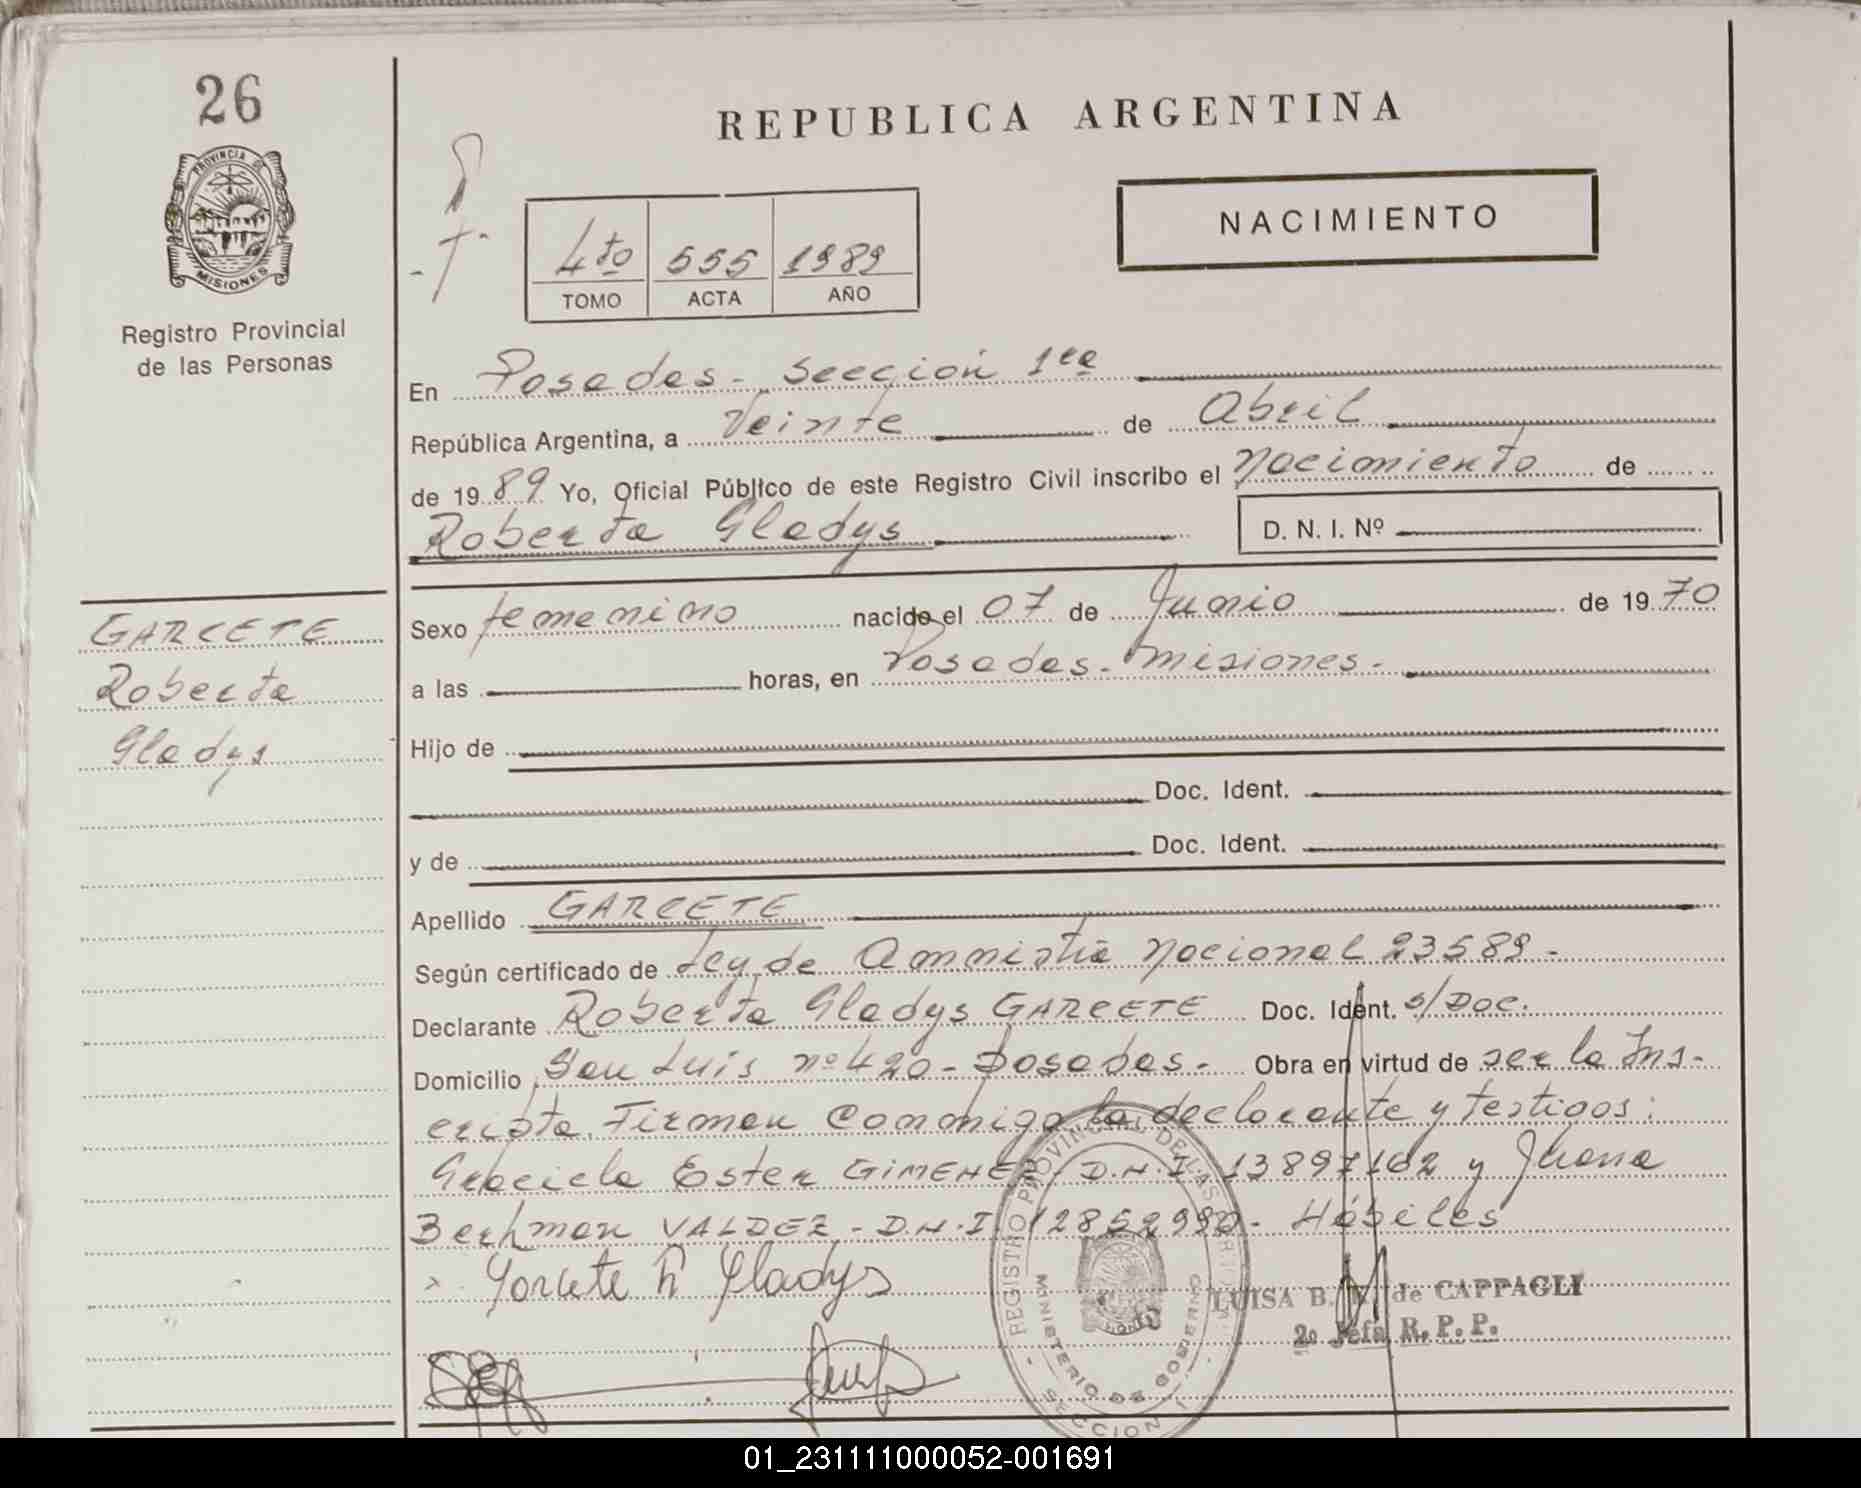 26
PROVINCIA DE
MISIONES
Registro Provincial
de las Personas
REPUBLICA ARGENTINA
NACIMIENTO
4to 555 1989
TOMO ACTA AÑO
En Posadas - Sección 1ra
República Argentina, a Veinte de Abril
de 1989 Yo, Oficial Público de este Registro Civil inscribo el nacimiento de
Roberta Gladys D. N. I. Nº
GARCETE
Roberta
Gladys
Sexo femenino nacido el 07 de Junio de 1970
a las horas, en Posadas - Misiones -
Hijo de
Doc. Ident.
y de Doc. Ident.
Apellido GARCETE
Según certificado de Ley de Amnistía Nacional 23589 -
Declarante Roberta Gladys GARCETE Doc. Ident. s/Doc.
Domicilio San Luis nº 420 - Posadas - Obra en virtud de ser la Ins-
cripta. Firman conmigo la declarante y testigos:
Graciela Ester GIMENEZ D.N.I. 13897162 y Juana
Berhman VALDEZ - D.N.I. 12852990 - Hábiles
Garcete R Gladys
REGISTRO PROVINCIAL DE LAS PERSONAS
MINISTERIO DE GOBIERNO
SECCION 1
LUISA B. de CAPPAGLI
2º Jefa R. P. P.
01_231111000052-001691